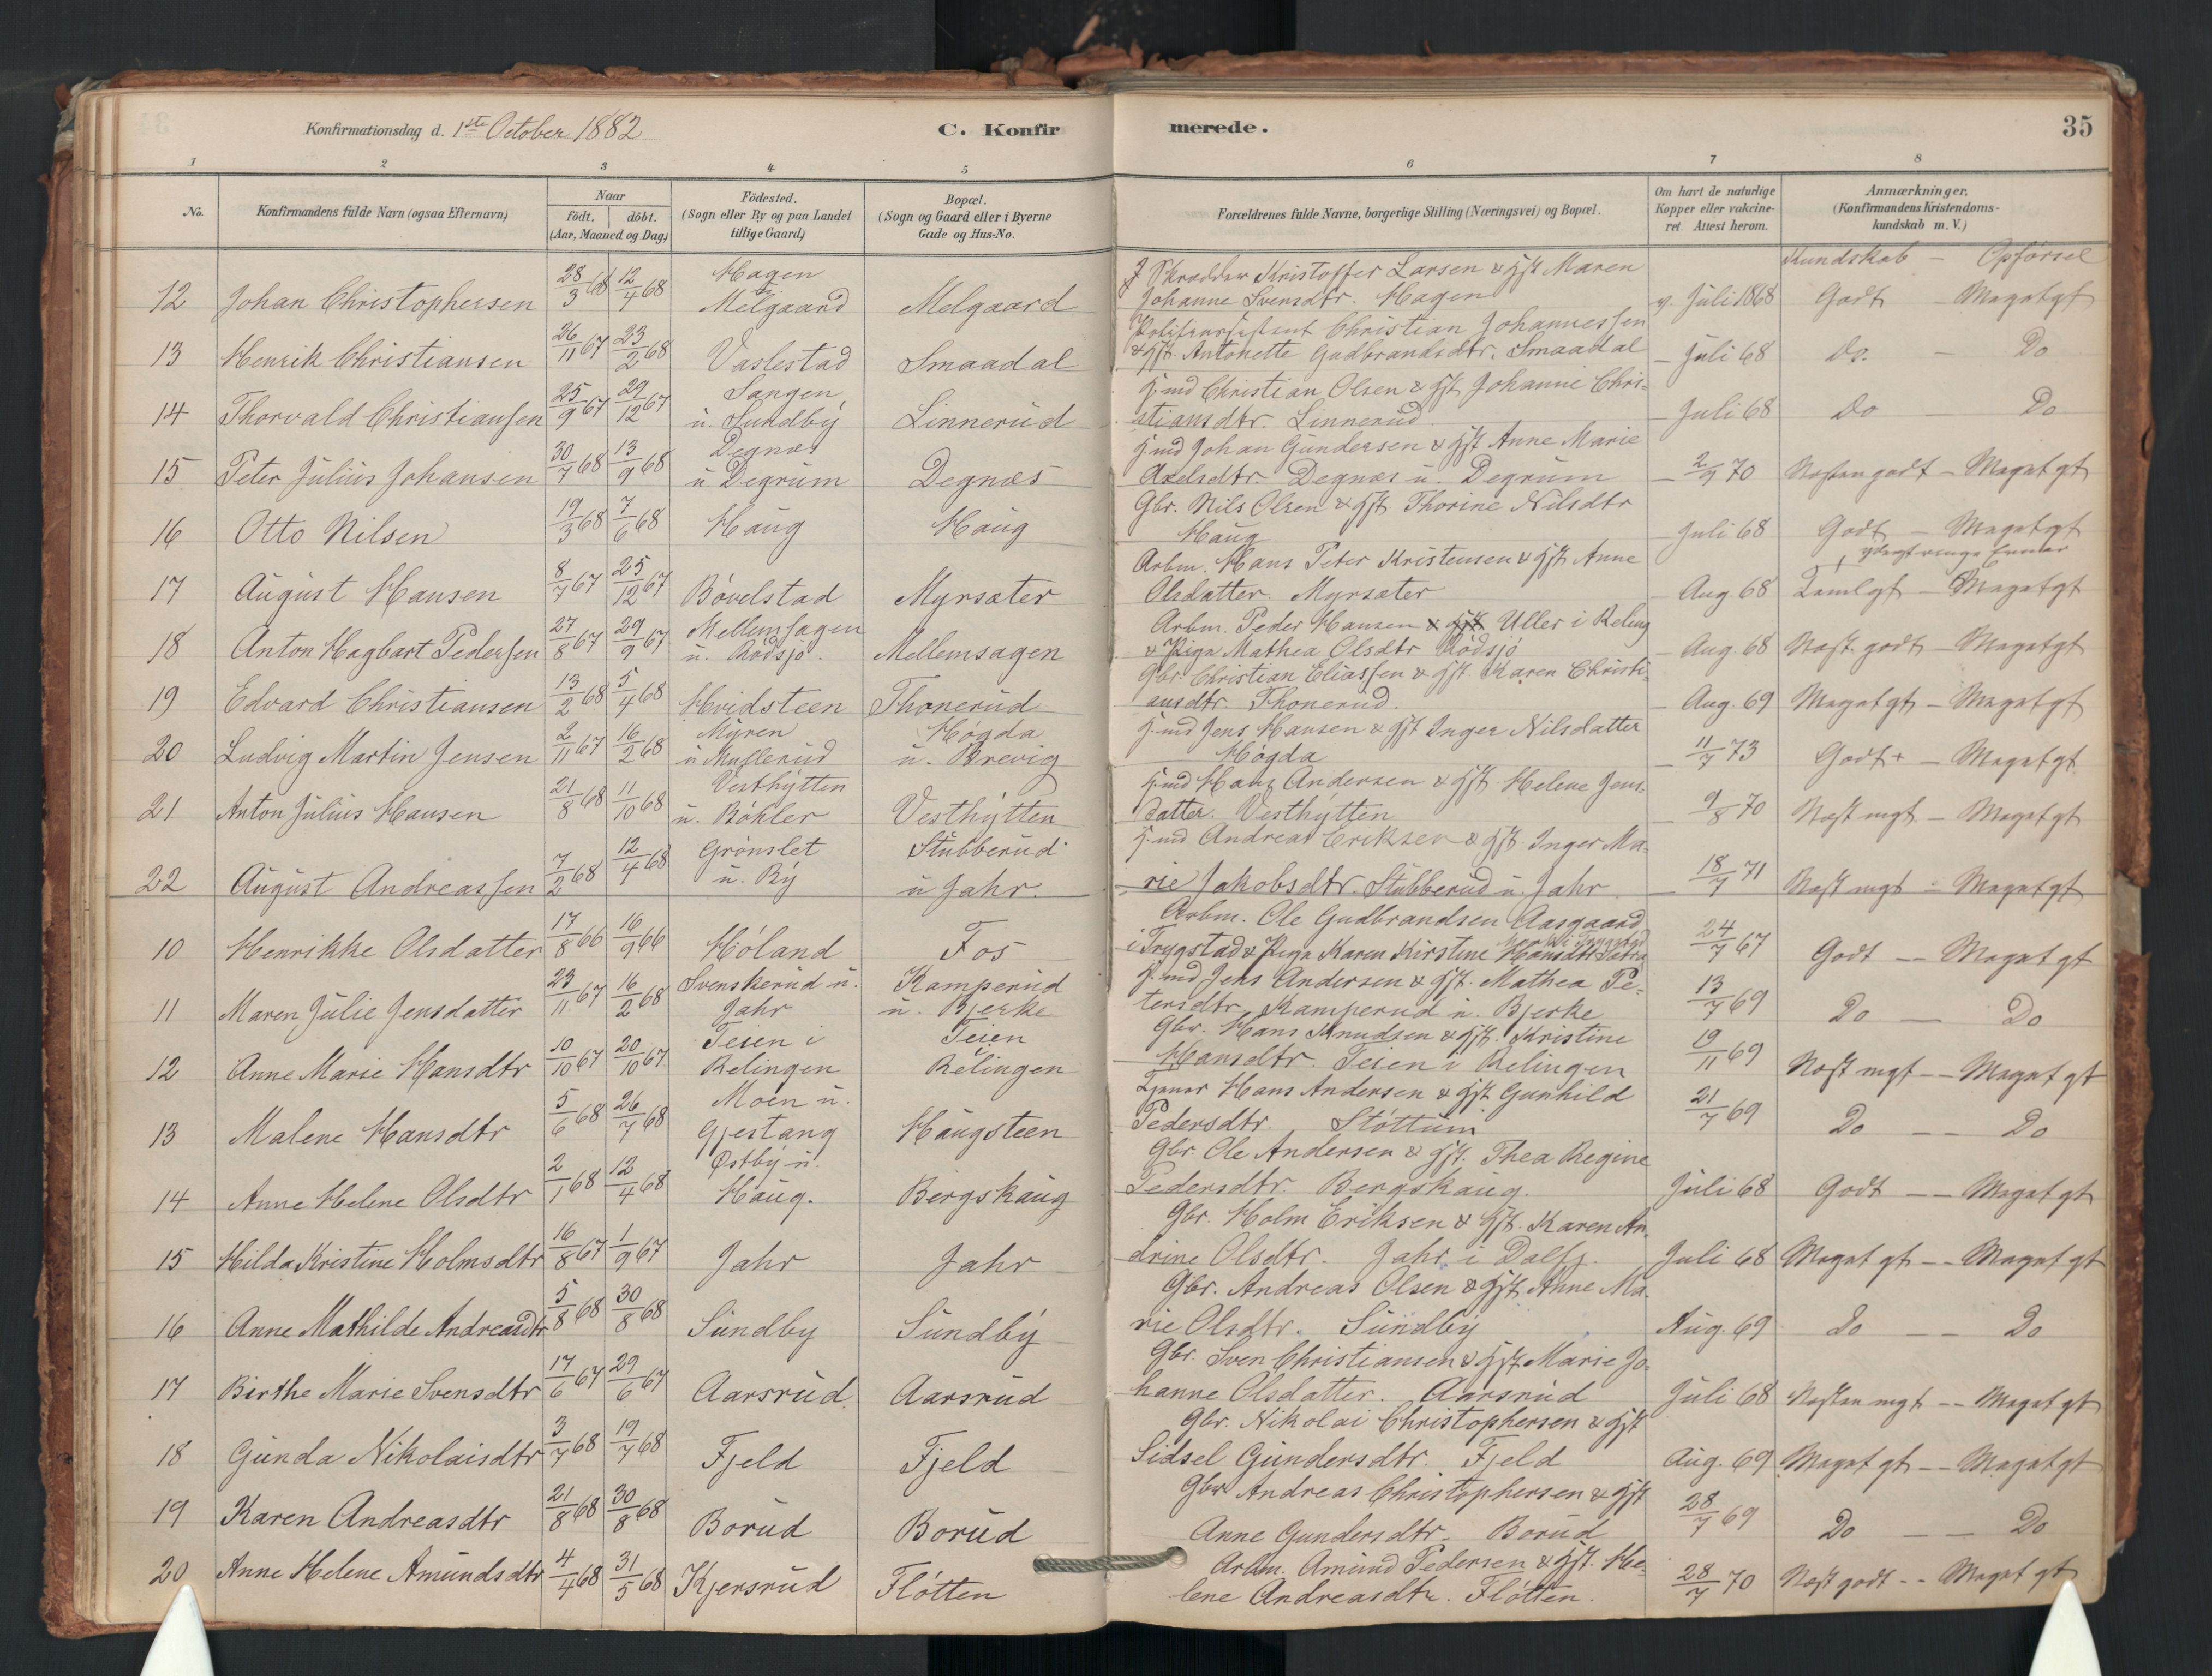 Konfirmationsdag d. 1ste October 1882
C. Konfirmerede.
35
1 2 3 4 5 6 7 8
No.
Konfirmandens fulde Navn (ogsaa Efternavn)
Naar
födt. döbt.
(Aar, Maaned og Dag)
Födested.
(Sogn eller By og paa Landet
tillige Gaard)
Bopæl.
(Sogn og Gaard eller i Byerne
Gade og Hus-No.
Forældrenes fulde Navne, borgerlige Stilling (Næringsvei) og Bopæl.
Om havt de naturlige
Kopper eller vakcine-
ret Attest herom.
Anmærkninger.
(Konfirmandens Kristendoms-
kundskab m. V.)
Kundskab - Opførsel
12 Johan Christophersen 28/3 68 12/4 68 Hagen Melgaard Melgaard
Skrædder Kristoffer Larsen & Hst Maren
Johanne Svensdtr. Hagen v. Juli 1868 Godt - Meget gt
13 Henrik Christiansen 26/11 67 23/2 68 Vaslestad Smaadal
Christian Johannessen
& Hst. Antonette Gudbrandsdtr. Smaadal - Juli 68 Do. - Do
14 Thorvald Christiansen 25/9 67 29/12 67 Sangen u. Sundby Linnerud
Hmd Christian Olsen & Hst Johanne Chri-
stiansdtr. Linnerud - Juli 68 Do - Do
15 Peter Julius Johansen 30/7 68 13/9 68 Degnæs u Degrum Degnæs
Hmd Johan Gundersen & Hst Anne Marie
Axelsdtr Degnæs u. Degrum - 2/9 70 Næsten godt - Meget gt
16 Otto Nilsen 19/3 68 7/6 68 Haug Haug
Gbr. Nils Olsen & Hst Thorine Nilsdtr
Haug - Juli 68 Godt - Meget gt
17 August Hansen 8/7 67 25/12 67 Bøvelstad Myrsæter
Arbm. Hans Peter Kristensen & Hst Anne
Olsdatter. Myrsæter - Aug 68 Temlgt - Meget gt
18 Anton Hagbart Pedersen 27/8 67 29/9 67 Mellemsagen u. Rødsjø. Mellemsagen
Arbm. Peder Hansen Uller i Reling
& Piga Mathea Olsdtr Rødsjø - Aug. 68 Næst. godt - Meget gt
19 Edvard Christiansen 13/2 68 5/4 68 Hvidsteen Thonerud
Gbr. Christian Eliassen & Hst. Karen Christi-
ansdtr. Thonerud. - Aug. 69 Meget gt - Meget gt
20 Ludvig Martin Jensen 2/11 67 16/2 68 Myren u Muslerud Høgda u. Brevig
Hmd Jens Hansen & Hst Inger Nilsdatter
Høgda - 11/7 73 Godt + - Meget gt
21 Anton Julius Hansen 21/8 68 11/10 68 Vesthytten u. Bøhler Vesthytten
Hmd Hans Andersen & Hst Helene Jens-
datter. Vesthytten - 9/8 70 Næst mgt - Meget gt
22 August Andreassen 7/2 68 12/4 68 Grønslet u. By Stubberud u Jahr.
Hmd Andreas Eriksen & Hst. Inger Ma-
rie Jakobsdtr. Stubberud u. Jahr - 18/7 71 Næst mgt - Meget gt
10 Henrikke Olsdatter 17/8 66 16/9 66 Høland Fos
Arbm. Ole Gudbrandsen Aasgaard
i Trygstad & Piga Karen Kirstine Hansdtr 24/7 67 Godt -- Meget gt
11 Maren Julie Jensdatter 23/11 67 16/2 68 Svenskerud u. Jahr Kamperud u. Bjerke
Hmd Jens Andersen & Hst. Mathea Pe-
tersdtr. Kamperud u. Bjerke 13/7 69 Do - Do
12 Anne Marie Hansdtr 10/10 67 20/10 67 Teien i Relingen Teien Relingen
Gbr. Hans Knudsen & Hst. Kristine
Hansdtr. Teien i Relingen 19/11 69 Næst mgt -- Meget gt
13 Malene Hansdtr 5/6 68 26/7 68 Moen u. Gjestang Haugsteen
Tjener Hans Andersen & Hst Gunhild
Pedersdtr. Støttum 21/7 69 Do -- Do
14 Anne Helene Olsdtr 2/1 68 12/4 68 Østby u. Haug. Bergskaug
Gbr. Ole Andersen & Hst. Thea Regine
Pedersdtr. Bergskaug. Juli 68 Godt -- Meget gt
15 Hilda Kristine Holmsdtr 16/8 67 1/9 67 Jahr Jahr
Gbr. Holm Eriksen & Hst. Karen An-
drine Olsdtr. Jahr i Dalss. Juli 68 Meget gt -- Meget gt
16 Anne Mathilde Andreasdtr 5/8 68 30/8 68 Sundby Sundby
Gbr. Andreas Olsen & Hst Anne Ma-
rie Olsdtr. Sundby Aug. 69 Do -- Do
17 Birthe Marie Svensdtr 17/6 67 29/6 67 Aarsrud. Aarsrud
Gbr. Sven Christiansen & Hst Marie Jo-
hanne Olsdatter. Aarsrud Juli 68 Næsten mgt -- Meget gt
18 Gunda Nikolaisdtr 3/7 68 19/7 68 Fjeld Fjeld
Gbr. Nikolai Christophersen & Hst
Sidsel Gundersdtr. Fjeld Aug. 69 Meget gt -- Meget gt
19 Karen Andreasdtr 21/8 68 30/8 68 Borud Borud
Gbr Andreas Christophersen & Hst
Anne Gundersdtr. Borud 28/7 69 Do -- Do
20 Anne Helene Amundsdtr 4/4 68 31/5 68 Kjersrud Fløtten
Arbm. Amund Pedersen & Hst. He-
lene Andreasdtr. Fløtten. 28/7 70 Næst godt -- Meget gt